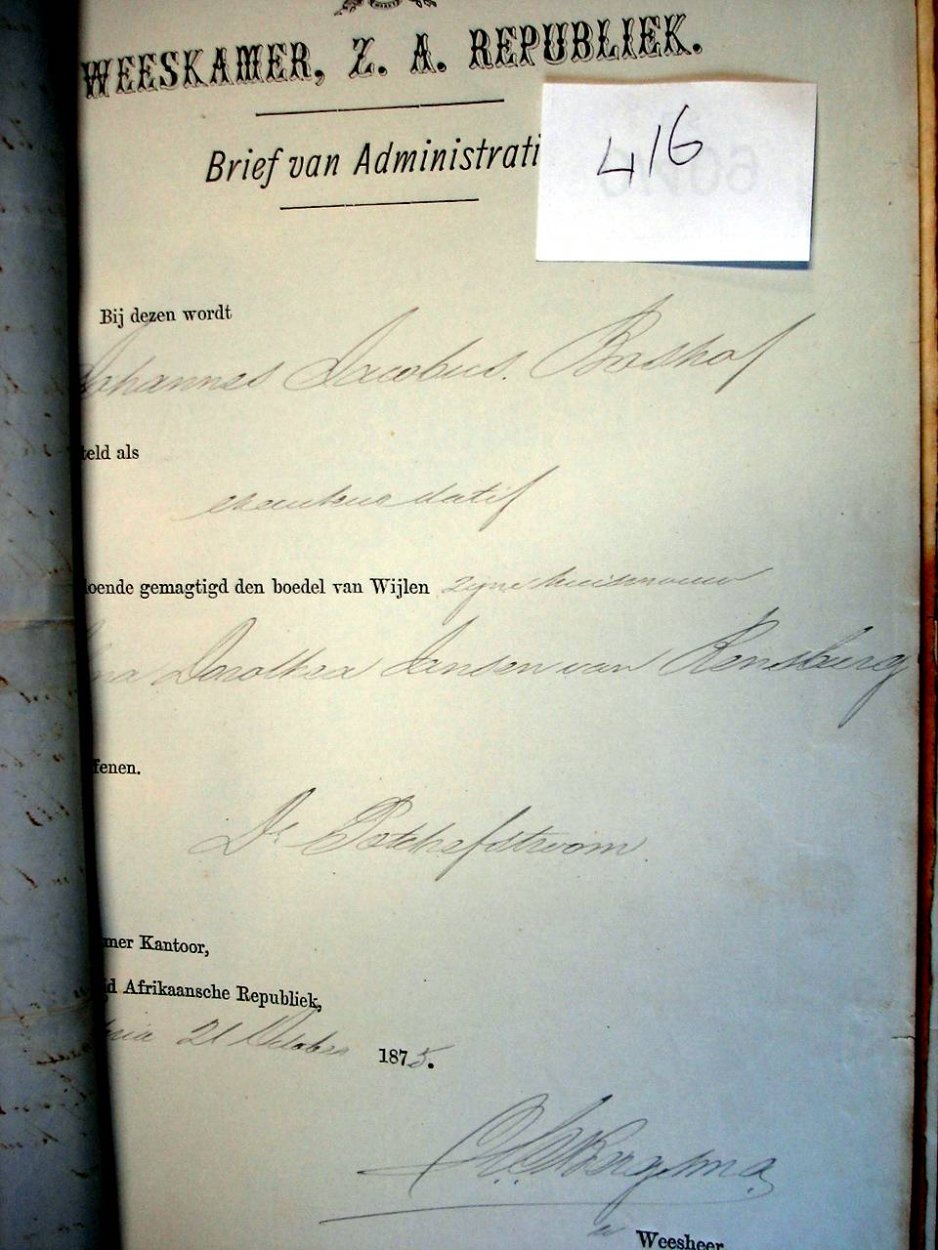 WEESKAMER, Z. A. REPUBLIEK.
Brief van Administrati
416
Bij dezen wordt
Johannes Jacobus. Boshof
teld als
executeur datif
doende gemagtigd den boedel van Wijlen zyne huisvrouw
na Dorothea Jansen van Rensburg
fenen.
Dt Potchefstroom
mer Kantoor,
id Afrikaansche Republiek,
ria 21 October 1875.
Weesheer